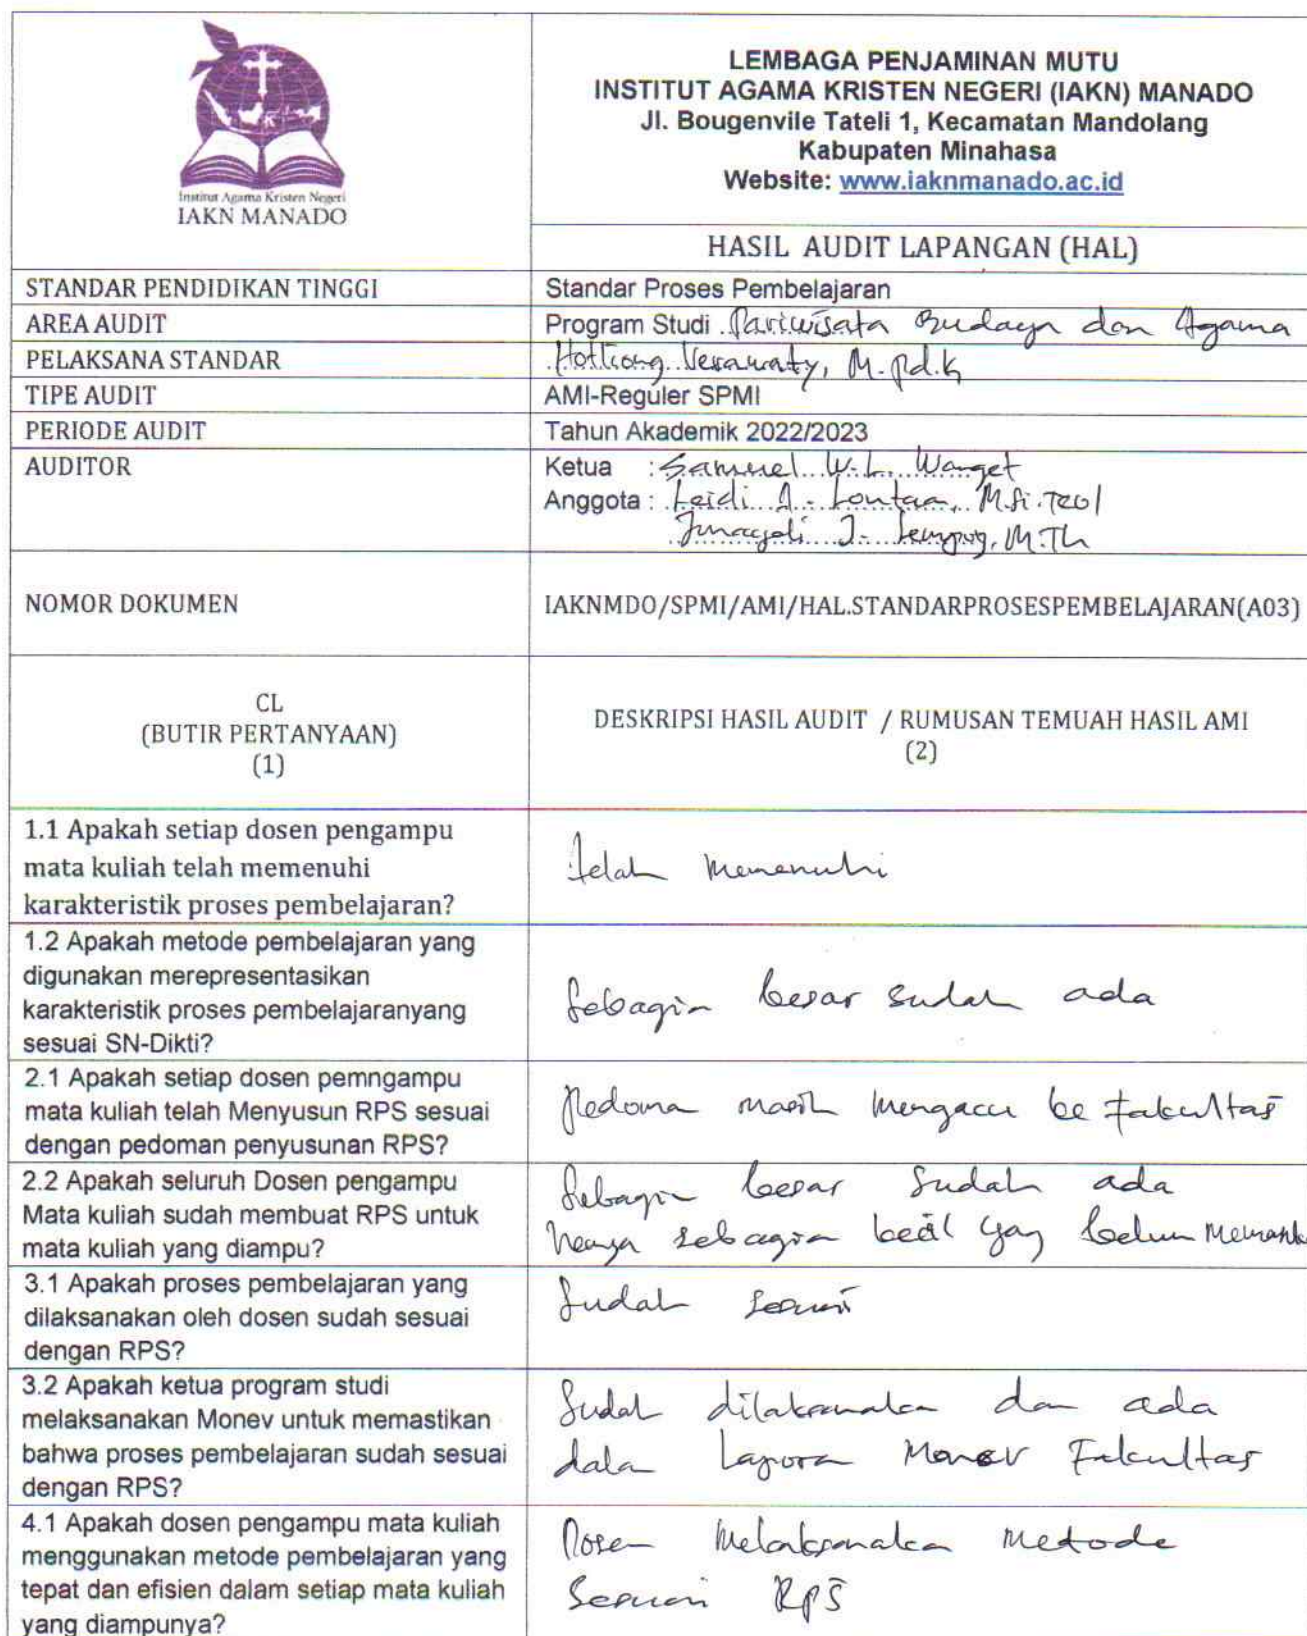 Institut Agama Kristen Negeri
IAKN MANADO
LEMBAGA PENJAMINAN MUTU
INSTITUT AGAMA KRISTEN NEGERI (IAKN) MANADO
Jl. Bougenvile Tateli 1, Kecamatan Mandolang
Kabupaten Minahasa
Website: www.iaknmanado.ac.id
HASIL AUDIT LAPANGAN (HAL)
STANDAR PENDIDIKAN TINGGI
Standar Proses Pembelajaran
AREA AUDIT
Program Studi Pariwisata Budaya dan Agama
PELAKSANA STANDAR
Verawaty, M.Pd.K
TIPE AUDIT
AMI-Reguler SPMI
PERIODE AUDIT
Tahun Akademik 2022/2023
AUDITOR
Ketua : Samuel W. L. Wanget
Anggota : Leidi J. Lontaan, M.Si.Teol
J. M.Th
NOMOR DOKUMEN
IAKNMDO/SPMI/AMI/HAL.STANDARPROSESPEMBELAJARAN(A03)
CL
(BUTIR PERTANYAAN)
(1)
DESKRIPSI HASIL AUDIT / RUMUSAN TEMUAH HASIL AMI
(2)
1.1 Apakah setiap dosen pengampu
mata kuliah telah memenuhi
karakteristik proses pembelajaran?
telah memenuhi
1.2 Apakah metode pembelajaran yang
digunakan merepresentasikan
karakteristik proses pembelajaranyang
sesuai SN-Dikti?
Sebagian besar sudah ada
2.1 Apakah setiap dosen pemngampu
mata kuliah telah Menyusun RPS sesuai
dengan pedoman penyusunan RPS?
Pedoman masih mengacu ke Fakultas
2.2 Apakah seluruh Dosen pengampu
Mata kuliah sudah membuat RPS untuk
mata kuliah yang diampu?
Sebagian besar sudah ada
hanya sebagian kecil yang belum
3.1 Apakah proses pembelajaran yang
dilaksanakan oleh dosen sudah sesuai
dengan RPS?
Sudah sesuai
3.2 Apakah ketua program studi
melaksanakan Monev untuk memastikan
bahwa proses pembelajaran sudah sesuai
dengan RPS?
Sudah dilaksanakan dan ada
dalam Laporan Monev Fakultas
4.1 Apakah dosen pengampu mata kuliah
menggunakan metode pembelajaran yang
tepat dan efisien dalam setiap mata kuliah
yang diampunya?
Dosen Melaksanakan metode
Sesuai RPS